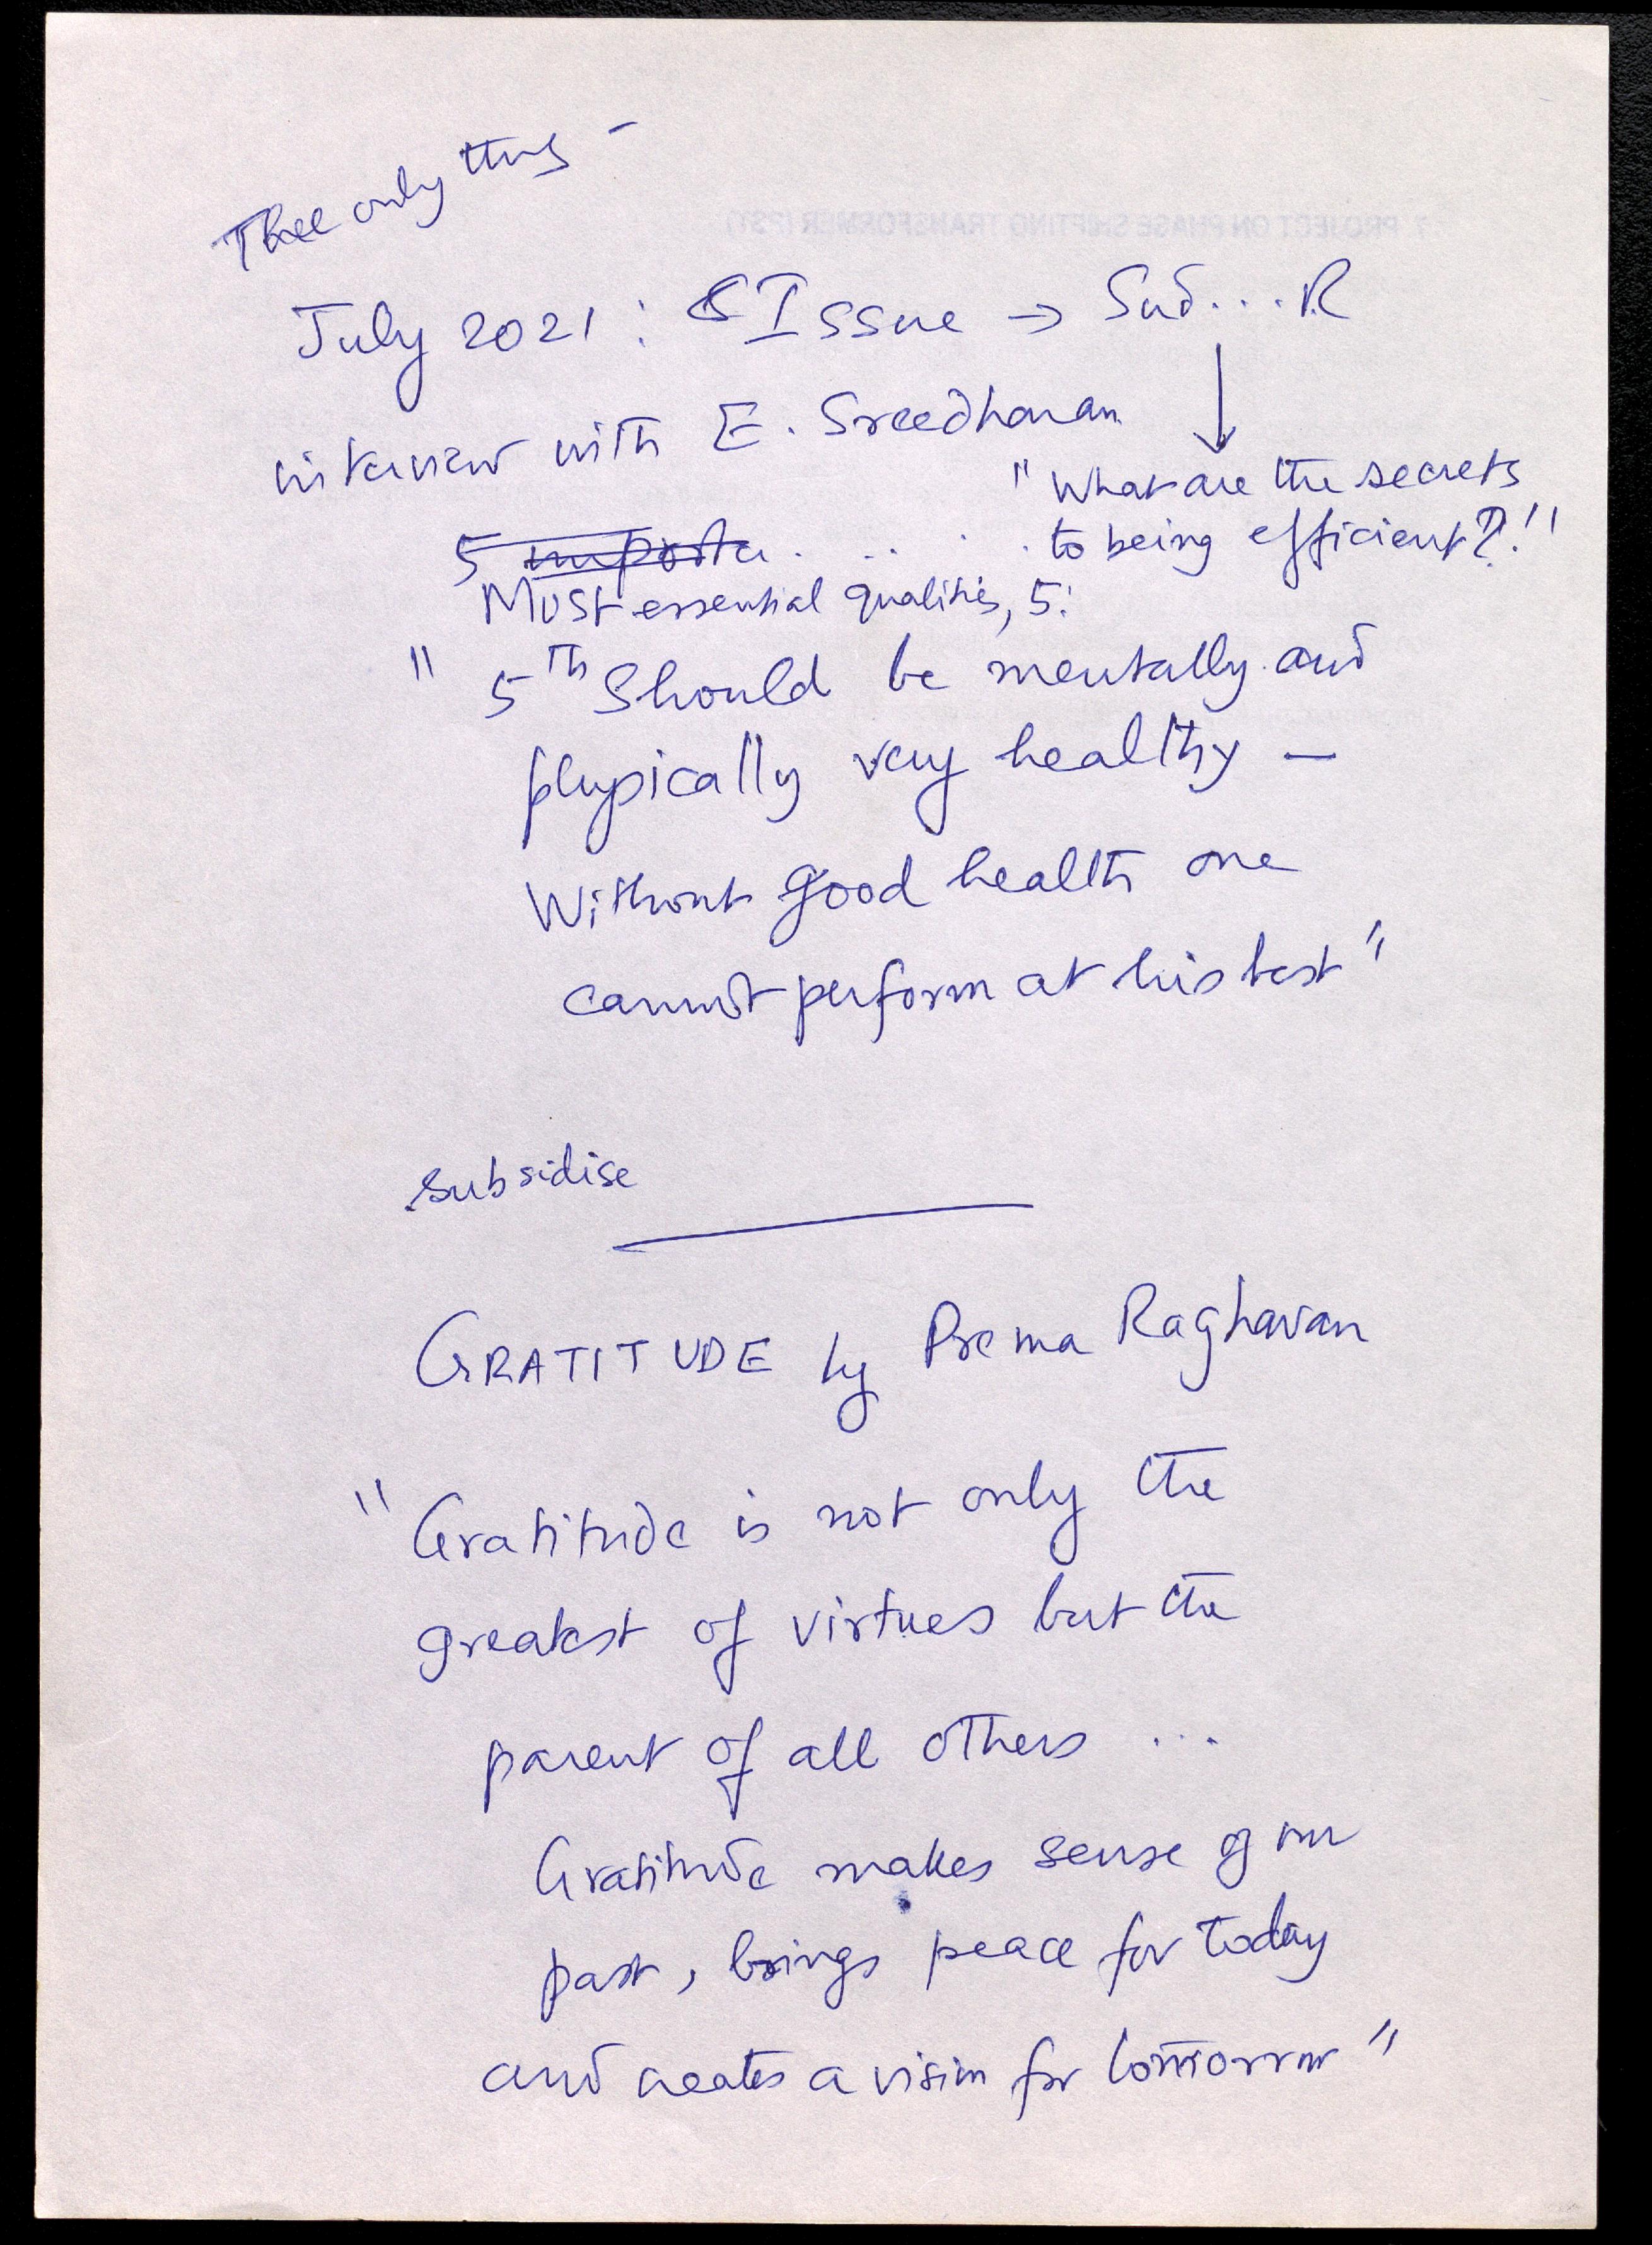 Three only thing –
July 2021 : Issue → Sud... R
interview with E. Sreedharan
"What are the secrets
to being efficient?!"
5 importa . . . . .
Most essential qualities, 5:
" 5th Should be mentally and
physically very healthy —
Without good health one
cannot perform at his best"
subsidise
GRATITUDE by Prema Raghavan
"Gratitude is not only the
greatest of virtues but the
parent of all others ...
Gratitude makes sense of our
past, brings peace for today
and creates a vision for tomorrow"